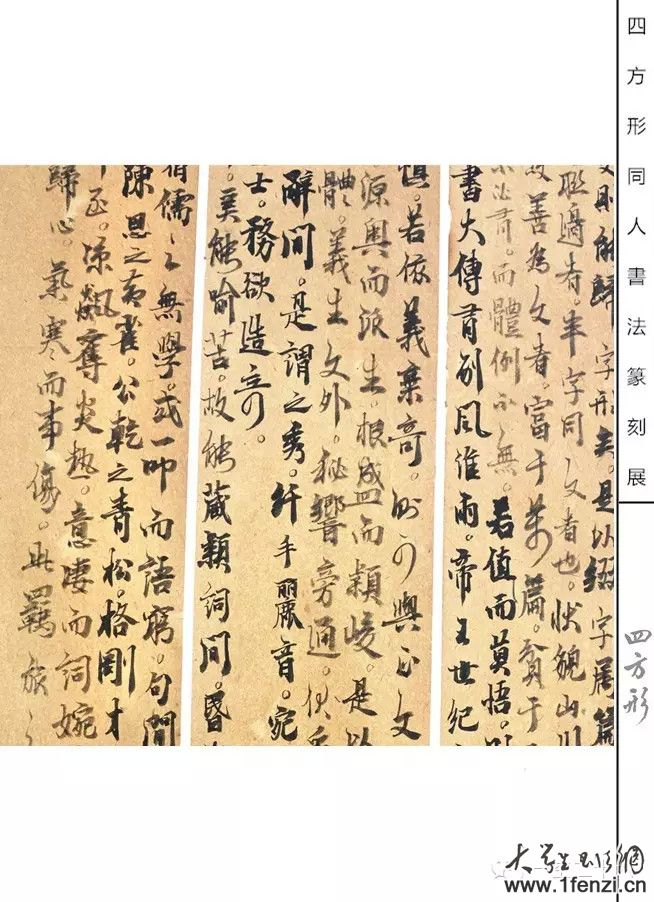 四方形同人書法篆刻展
四方形
則能歸字形矣。是以綴字屬篇
聯邊者。半字同文者也。狀貌山川
故善為文者。富于萬篇。貧于
不必有。而體例不無。若值而莫悟。則
書大傳有別風淮雨。帝王世紀
慎。若依義棄奇。則可與正文
源奧而派生。根盛而穎峻。是以
體。義生文外。秘響旁通。伏采
辭間。是謂之秀。纤手麗音。宛
士。務欲造奇。
奚能喻苦。故能蔵穎詞間。昏
宿儒之無學。或一叩而語窮。句間
陳思之黃雀。公乾之青松。格剛才
涼飆奪炎熱。意悽而詞婉
歸心。氣寒而事傷。此羈旅之
大学生书法網
www.1fenzi.cn